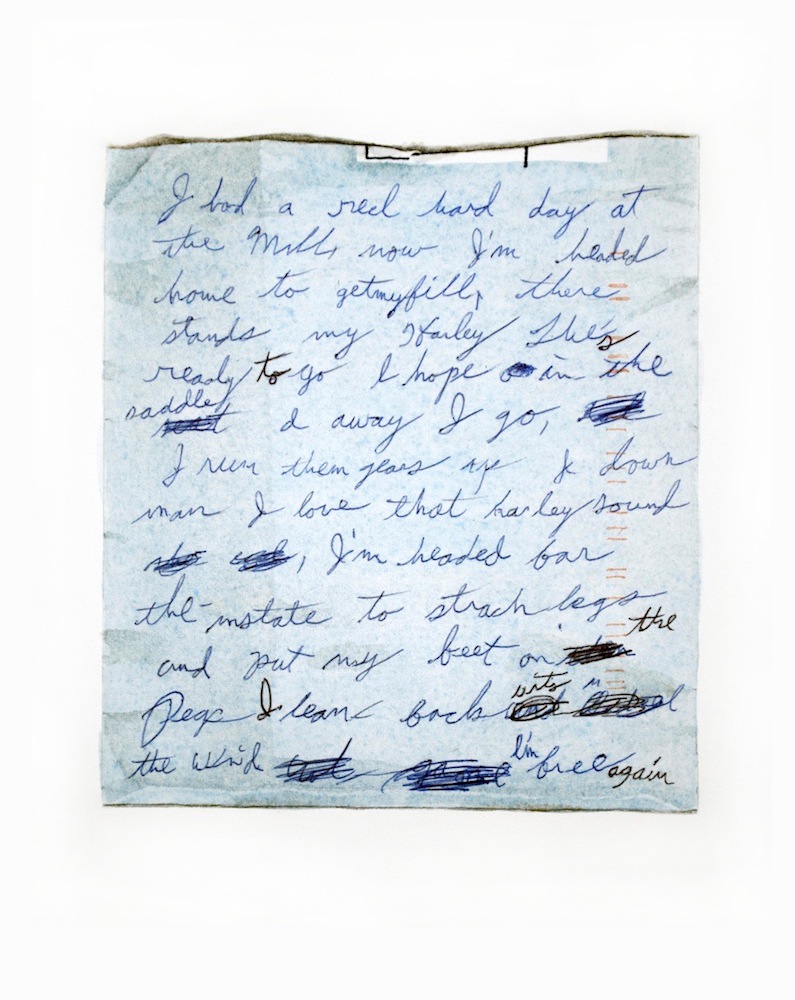 I had a reel hard day at
the Mill, now I'm headed
home to getmyfill, there
stands my Harley She's
ready to go I hope in the
saddle & away I go,
I run them gears up & down
man I love that harley sound
, I'm headed for
the instate to strach legs
and put my feet on the
Pegs I lean back into
the wind I'm free again